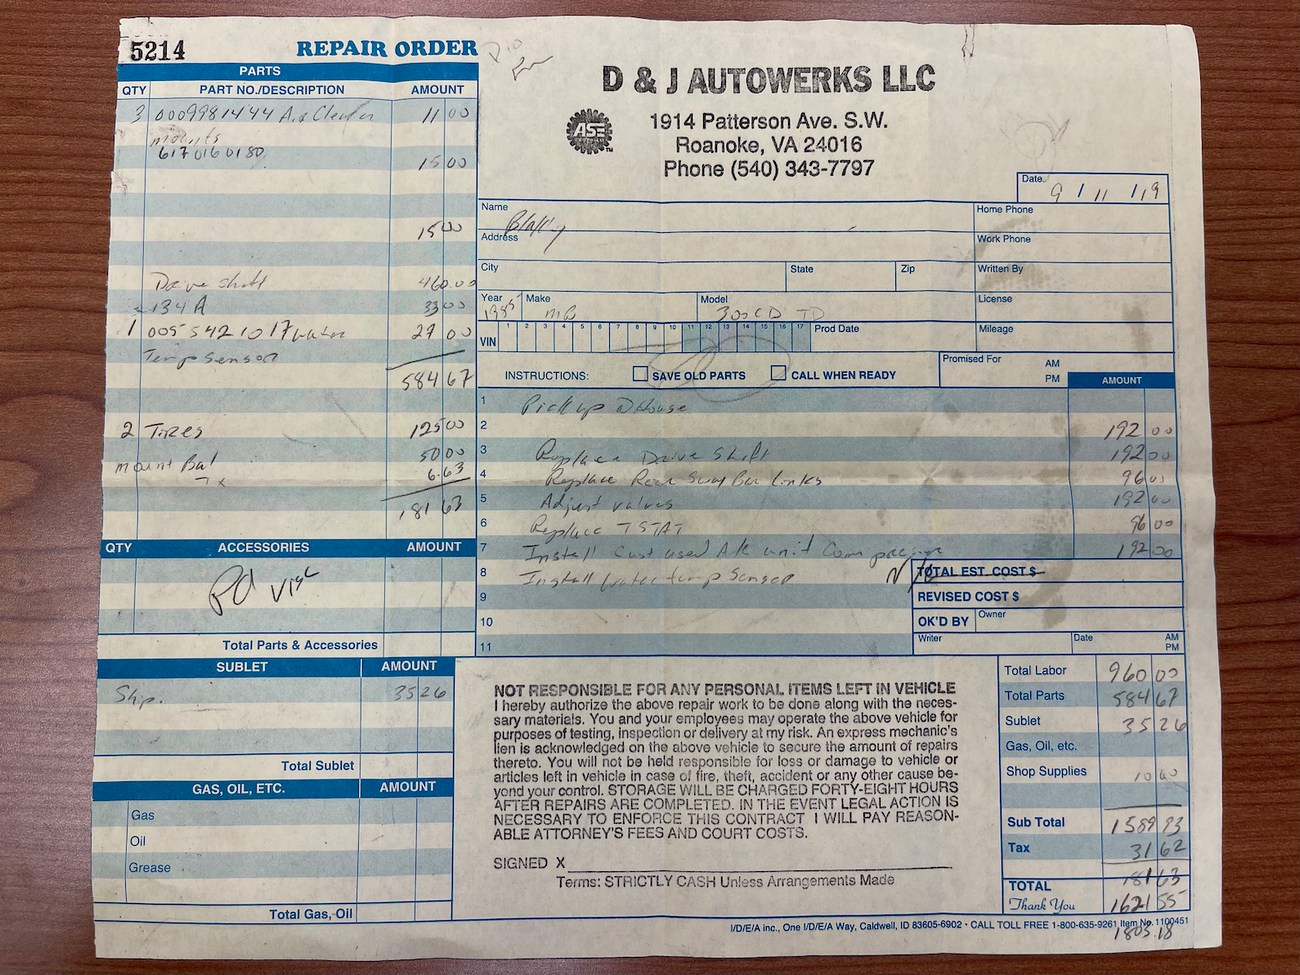 5214
REPAIR ORDER
PARTS
QTY PART NO./DESCRIPTION AMOUNT
3 0009981444 11 00
mounts
617 016 01 80 15 00
15 00
Drive shaft 460.00
134 A 33 00
1 005 542 10 17 water 27 00
Temp sensor
584 67
2 Tires 125 00
mount Bal 50 00
Tx 6.63
181 63
QTY ACCESSORIES AMOUNT
Pd
Total Parts & Accessories
SUBLET AMOUNT
Ship. 35 26
Total Sublet
GAS, OIL, ETC. AMOUNT
Gas
Oil
Grease
Total Gas, Oil
D & J AUTOWERKS LLC
ASE
1914 Patterson Ave. S.W.
Roanoke, VA 24016
Phone (540) 343-7797
Date 9 / 11 / 19
Name Home Phone
Address Work Phone
City State Zip Written By
Year 1985 Make MB Model 300CD TD License
VIN 1 2 3 4 5 6 7 8 9 10 11 12 13 14 15 16 17 Prod Date Mileage
INSTRUCTIONS: SAVE OLD PARTS CALL WHEN READY Promised For AM PM
AMOUNT
1 Pick up @ House
2 192 00
3 Replace Drive Shaft 192 00
4 Replace Rear Sway Bar Links 96 00
5 Adjust valves 192 00
6 Replace TSTAT 96 00
7 Install Cust used A/C unit 192 00
8 Install water temp sensor
TOTAL EST. COST $
9 REVISED COST $
10 OK'D BY Owner
11 Writer Date AM PM
NOT RESPONSIBLE FOR ANY PERSONAL ITEMS LEFT IN VEHICLE
I hereby authorize the above repair work to be done along with the neces-
sary materials. You and your employees may operate the above vehicle for
purposes of testing, inspection or delivery at my risk. An express mechanic's
lien is acknowledged on the above vehicle to secure the amount of repairs
thereto. You will not be held responsible for loss or damage to vehicle or
articles left in vehicle in case of fire, theft, accident or any other cause be-
yond your control. STORAGE WILL BE CHARGED FORTY-EIGHT HOURS
AFTER REPAIRS ARE COMPLETED. IN THE EVENT LEGAL ACTION IS
NECESSARY TO ENFORCE THIS CONTRACT I WILL PAY REASON-
ABLE ATTORNEY'S FEES AND COURT COSTS.
SIGNED X
Terms: STRICTLY CASH Unless Arrangements Made
Total Labor 960 00
Total Parts 584 67
Sublet 35 26
Gas, Oil, etc.
Shop Supplies 10 00
Sub Total 1589 93
Tax 31 62
181 63
TOTAL
Thank You 1621 55
I/D/E/A inc., One I/D/E/A Way, Caldwell, ID 83605-6902 • CALL TOLL FREE 1-800-635-9261 Item No. 1100451
1803.18